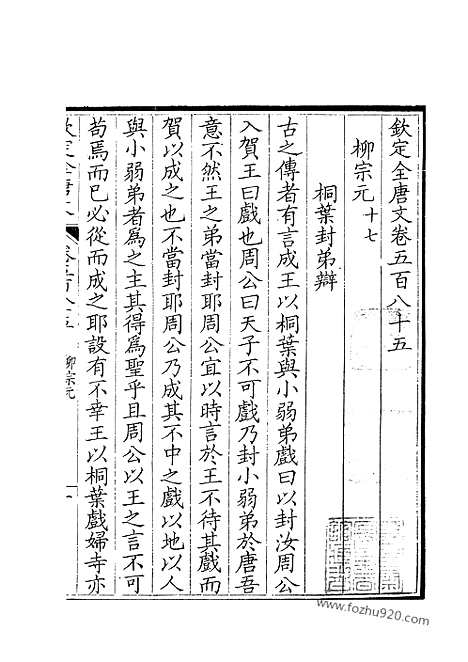 欽定全唐文卷五百八十五
柳宗元十七
桐葉封弟辯
古之傳者有言成王以桐葉與小弱弟戲曰以封汝周公
入賀王曰戲也周公曰天子不可戲乃封小弱弟於唐吾
意不然王之弟當封耶周公宜以時言於王不待其戲而
賀以成之也不當封耶周公乃成其不中之戲以地以人
與小弱弟者為之主其得為聖乎且周公以王之言不可
苟焉而已必從而成之耶設有不幸王以桐葉戲婦寺亦
柳宗元
www.fozhu920.com